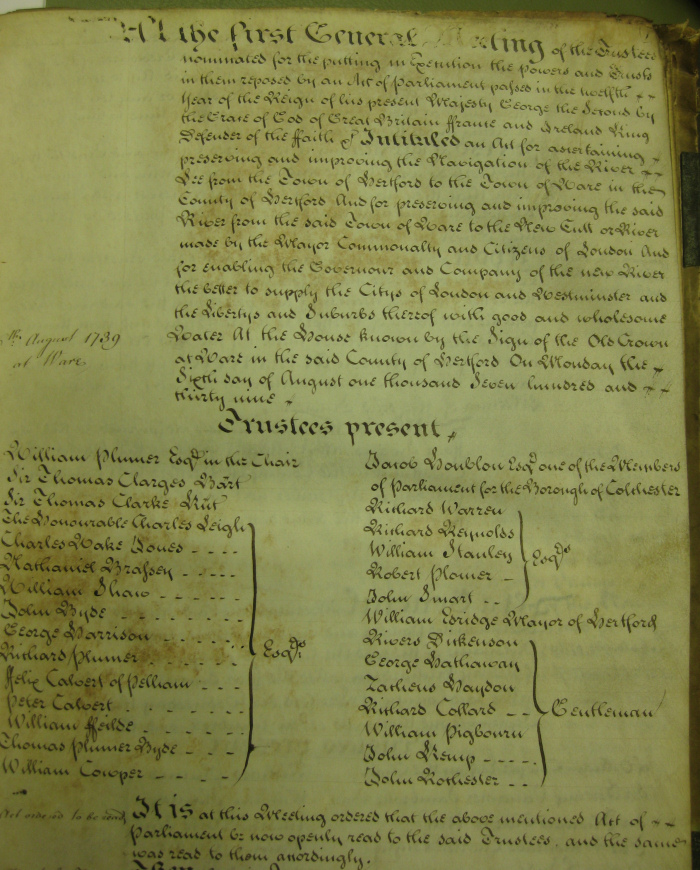 At the first General Meeting of the Trustees
nominated for the putting in Execution the Powers and Trusts
in them reposed by an Act of Parliament passed in the twelfth
Year of the Reign of his present Majesty George the Second by
the Grace of God of Great Britain ffrance and Ireland King
Defender of the ffaith &c Intituled an Act for ascertaining
preserving and improving the Navigation of the River
Lee from the Town of Hertford to the Town of Ware in the
County of Hertford And for preserving and improving the said
River from the said Town of Ware to the New Cutt or River
made by the Mayor Commonalty and Citizens of London And
for enabling the Governour and Company of the new River
the better to supply the Citys of London and Westminster and
the Libertys and Suburbs thereof with good and wholesome
Water At the House known by the Sign of the Old Crown
at Ware in the said County of Hertford On Monday the
Sixth day of August one thousand Seven hundred and
thirty nine
August 1739
at Ware
Trustees present
William Plumer Esqr. in the Chair
Sir Thomas Clarges Bart
Sir Thomas Clarke Knt
The Honourable Charles Leigh
Charles Wake Jones
Nathaniel Brassey
William Shaw
John Byde
George Harrison
Richard Plumer
ffelix Calvert of Pelham
Peter Calvert
William ffeilde
Thomas Plumer Byde
William Cowper
Esqrs.
Jacob Houblon Esqr. one of the Members
of Parliament for the Borough of Colchester
Richard Warren
Richard Reynolds
William Stanley
Robert Plomer
John Smart
Esqrs.
William Edridge Mayor of Hertford
Rivers Dickenson
George Hathaway
Zacheus Haydon
Richard Collard
William Pigbourn
John Kemp
John Rochester
Gentleman
Act ordered to be read
It is at this Meeting ordered that the above mentioned Act of
Parliament be now openly read to the said Trustees, and the same
was read to them accordingly.